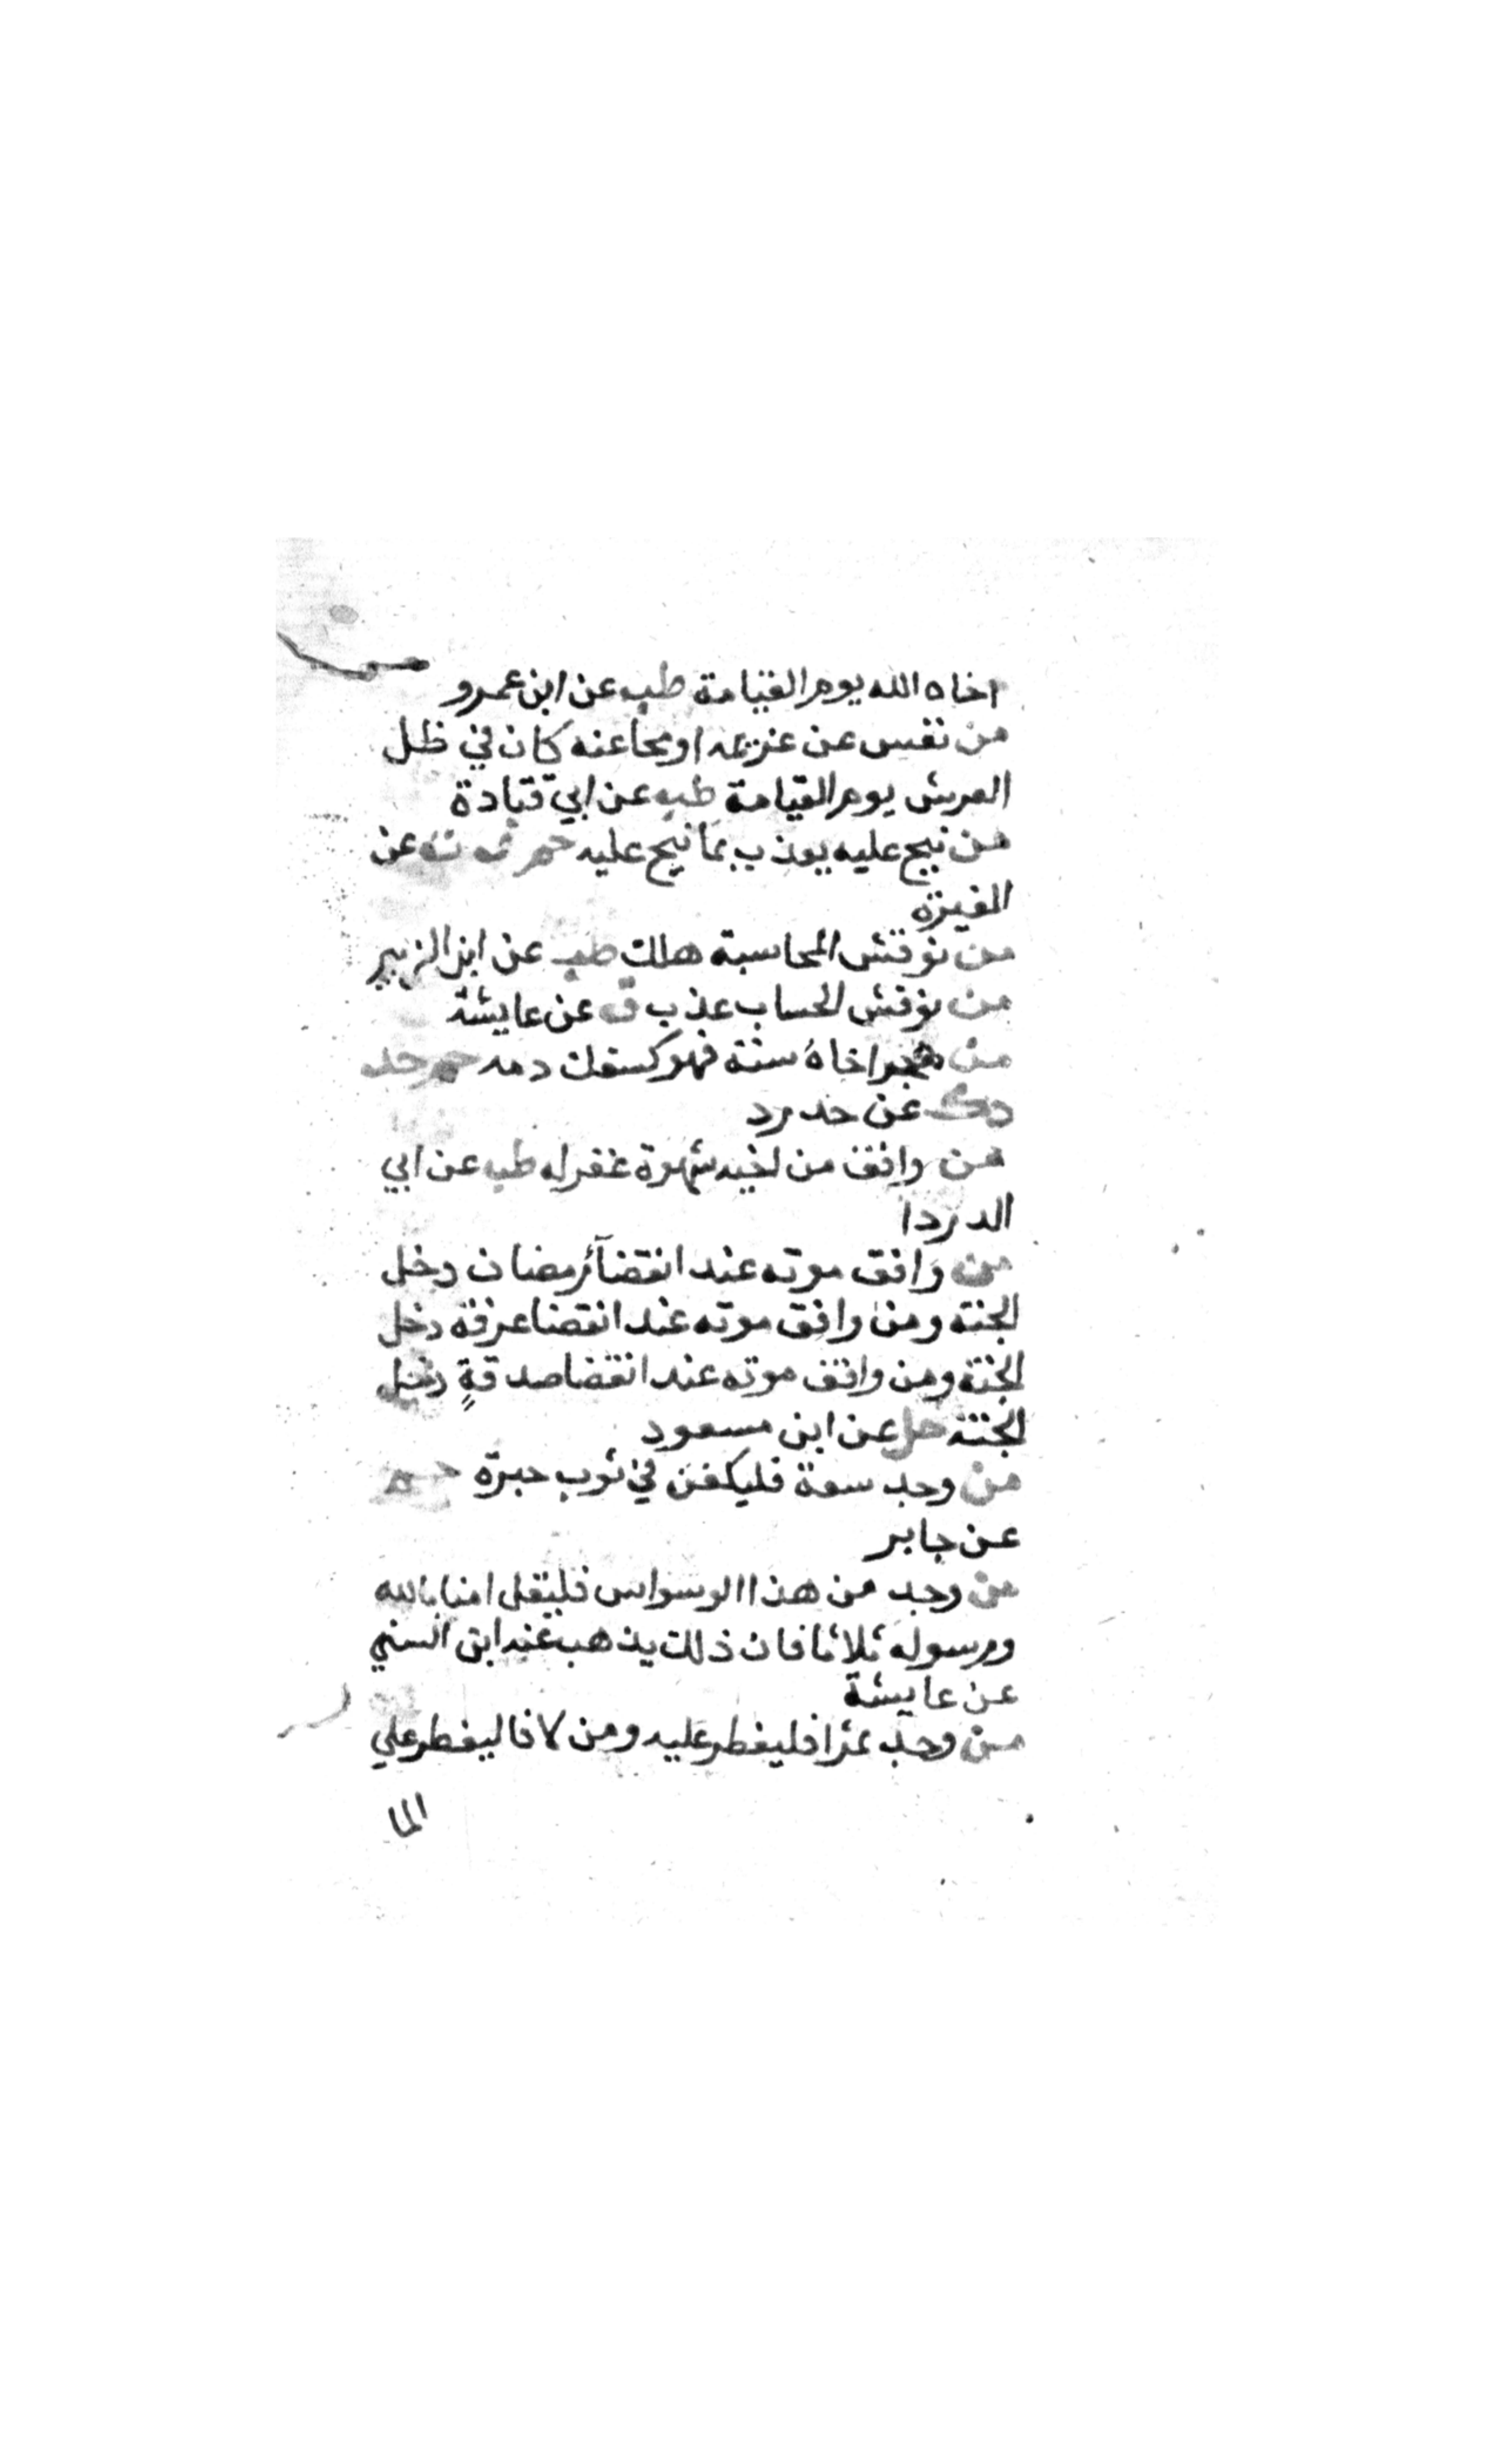 اخاه الله يوم القيامة طب عن ابن عمرو
من نفس عن غريمه او محا عنه كان في ظل
العرش يوم القيامة طب عن ابي قتادة
من نيح عليه يعذب بما نيح عليه حم ق ت عن
المغيرة
من نوقش المحاسبة هلك طب عن ابن الزبير
من نوقش الحساب عذب ق عن عايشة
من هجر اخاه سنة فهو كسفك دمه حم خد
د ك عن حدرد
من وافق من اخيه شهوة غفر له طب عن ابي
الدردا
من وافق موته عند انقضآء رمضان دخل
الجنة ومن وافق موته عند انقضا عرفة دخل
الجنة ومن وافق موته عند انقضا صدقةٍ دخل
الجنة حل عن ابن مسعود
من وجد سعة فليكفن في ثوب حبرة حم
عن جابر
من وجد من هذا الوسواس فليقل امنا بالله
ورسوله ثلاثا فان ذلك يذهب عنه ابن السني
عن عايشة
من وجد تمرا فليفطر عليه ومن لا فاليفطر علي
الما